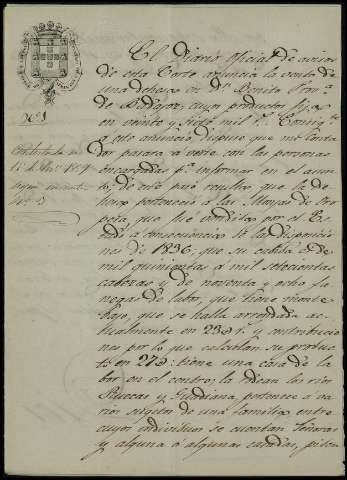 Nº 1
El Diario oficial de avisos
de esta Corte anuncia la venta de
una dehesa en Dn. Benito Provª
de Badajoz, cuyos productos fija
en veinte y siete mil rs.
a este anuncio, dispuse que mi Conta
dor pasara a verse con las personas
encargadas pª informar en el asun
to; de esto pues resultar que la de
hesa perteneció a las Monjas de
que vendidas por el Es
tado a consecuencia de la disposicio
nes de 1836; que su cabida es de
mil quinientas a mil setecientas
cabezas y de noventa y ocho fa
negas de labor, que tiene monte
bajo, que se halla arrendada ac
tualmente en 23 y contribucio
nes por lo que calculan su produc
to en 27: tiene una casa de la
bor en el centro; la rodean los rios
Ruecas y Guadiana, pertenece a va
rios sugetos de una familia entre
cuyos individuos se cuentan Señoras
y alguna ó algunas casadas, piden